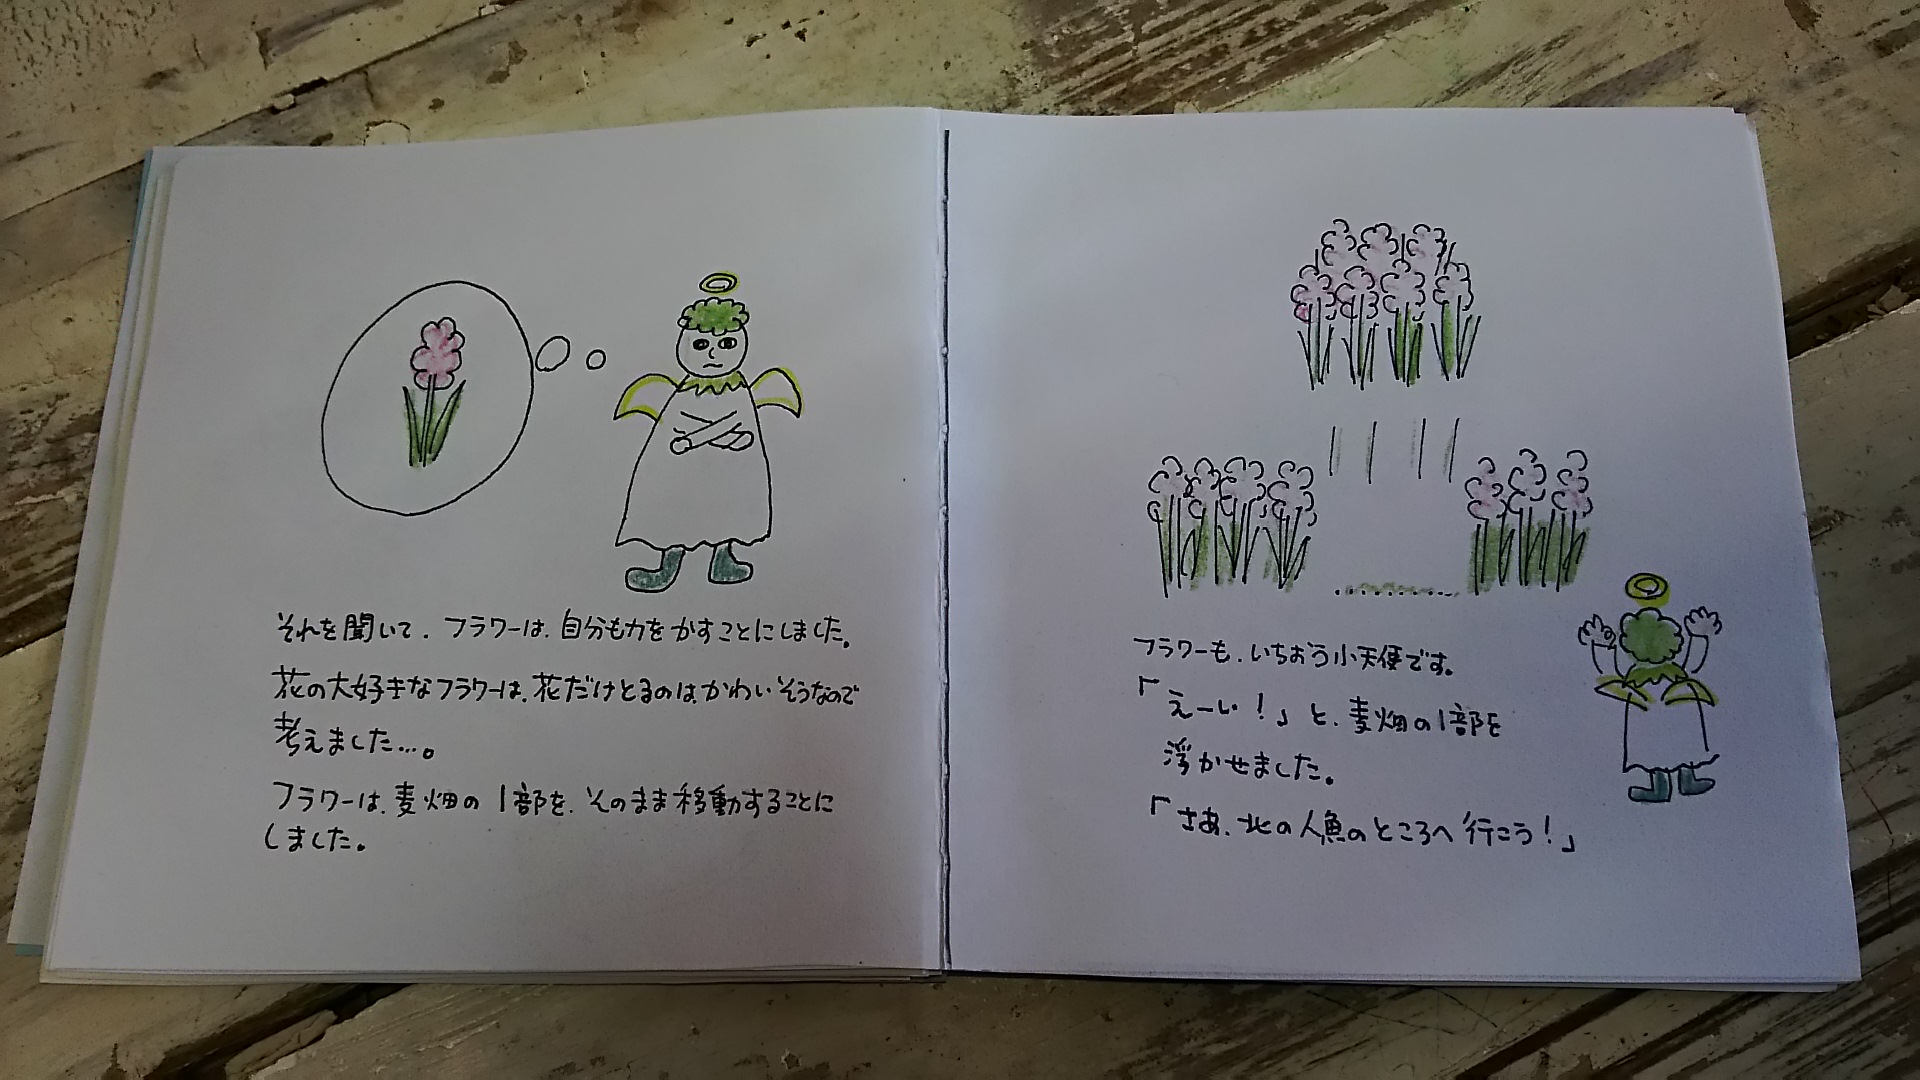 それを聞いて、フラワーは、自分も力をかすことにしました。
花の大好きなフラワーは、花だけとるのはかわいそうなので
考えました…。
フラワーは、麦畑の1部を、そのまま移動することに
しました。
フラワーも、いちおう小天使です。
「えーい!」と、麦畑の1部を
浮かせました。
「さあ、北の人魚のところへ行こう!」